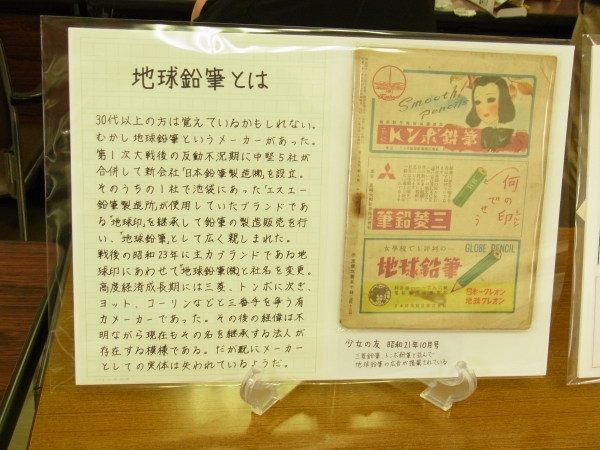 地球鉛筆とは
30代以上の方は覚えているかもしれない。
むかし地球鉛筆というメーカーがあった。
第1次大戦後の反動不況期に中堅5社が
合併して新会社「日本鉛筆製造㈱」を設立。
そのうちの1社で池袋にあった「エスエー
鉛筆製造所」が使用していたブランドであ
る「地球印」を継承して鉛筆の製造販売を行
い、「地球鉛筆」として広く親しまれた。
戦後の昭和23年に主力ブランドである地
球印にあわせて「地球鉛筆㈱」と社名を変更。
高度経済成長期には三菱、トンボに次ぎ、
ヨット、コーリンなどと三番手を争う有
力メーカーであった。その後の経緯は不
明ながら現在もその名を継承する法人が
存在する模様である。だが既にメーカー
としての実体は失われているようだ。
Smooth!
Pencils
筆鉛ボント
何の印
でせう
筆鉛菱三
女学校でも評判の…
GLOBE PENCIL
地球鉛筆
日本一クレオン
地球クレオン
少女の友 昭和21年10月号
三菱鉛筆、トンボ鉛筆と並んで
地球鉛筆の広告が掲載されている